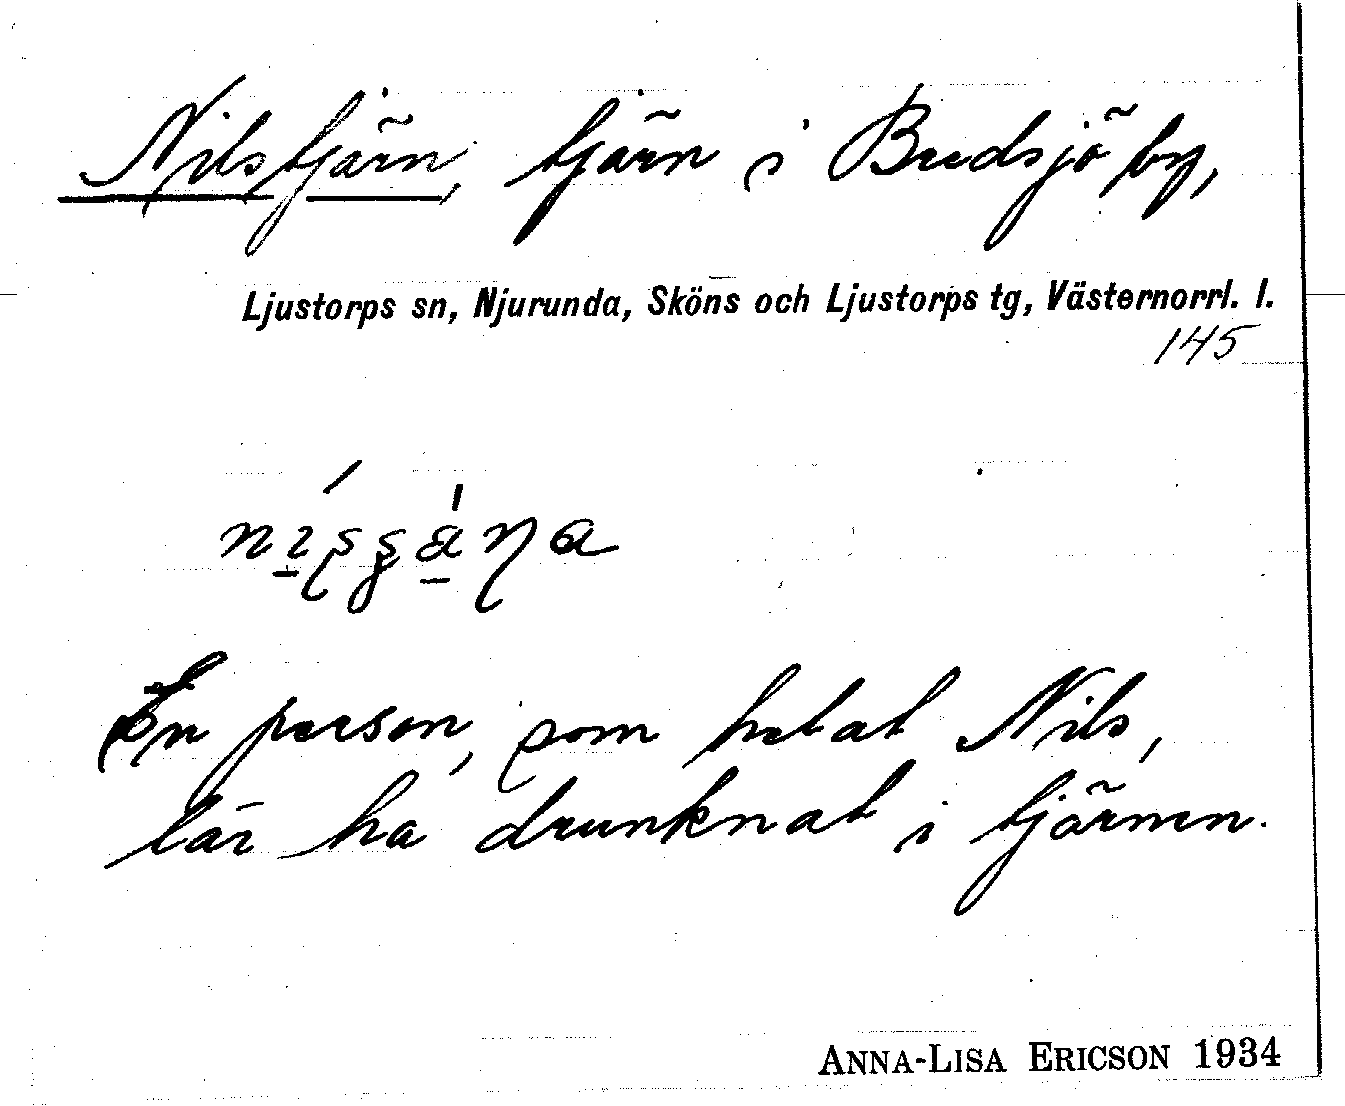 Nilstjärn, tjärn i Bredsjö by,
Ljustorps sn, Njurunda, Sköns och Ljustorps tg, Västernorrl. l.
145
En person, som hetat Nils,
lär ha drunknat i tjärnen.
ANNA-LISA ERICSON 1934